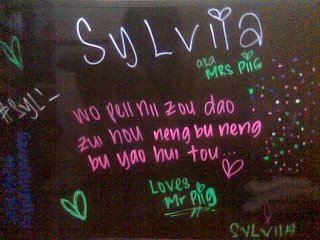 SYLViia
aka
MRS PiiG
#SYL'-
wo peii nii zou dao
zui hou neng bu neng
bu yao hui tou...
Loves
Mr Piig
SYLViiA